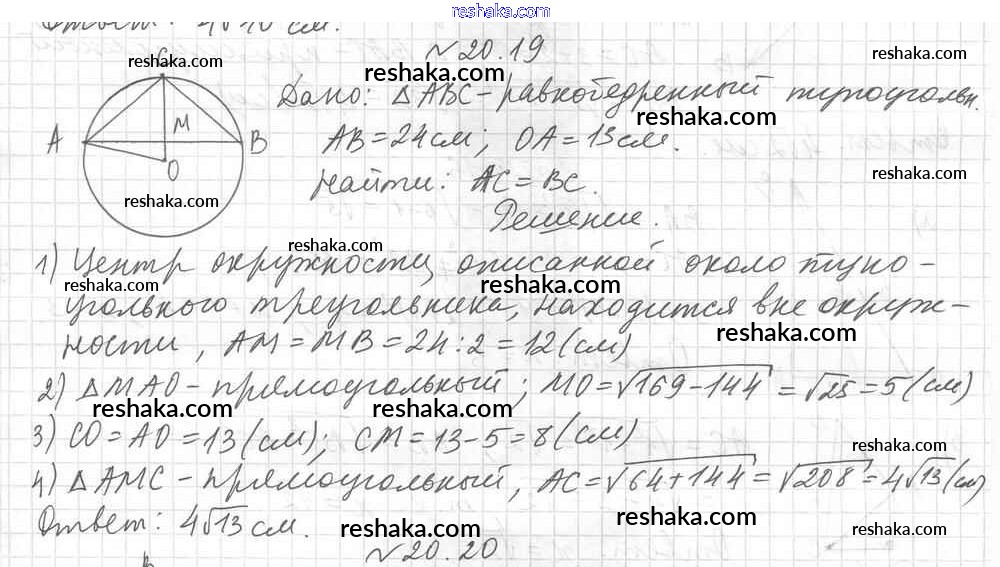 reshaka.com
Ответ: 4√10 см.
№20.19
reshaka.com reshaka.com reshaka.com
C
Дано: △ABC - равнобедренный тупоугольн.
reshaka.com
A M B
AB = 24 см; OA = 13 см.
reshaka.com
O
Найти: AC = BC.
reshaka.com reshaka.com
Решение.
reshaka.com
1) Центр окружности, описанной около тупо-
reshaka.com reshaka.com
угольного треугольника, находится вне окруж-
reshaka.com
ности, AM = MB = 24 : 2 = 12 (см)
2) △MAO - прямоугольный; MO = √169-144 = √25 = 5 (см)
reshaka.com reshaka.com
3) CO = AO = 13 (см); CM = 13 - 5 = 8 (см)
reshaka.com
4) △AMC - прямоугольный, AC = √64+144 = √208 = 4√13 (см)
reshaka.com reshaka.com
Ответ: 4√13 см.
reshaka.com reshaka.com
№20.20